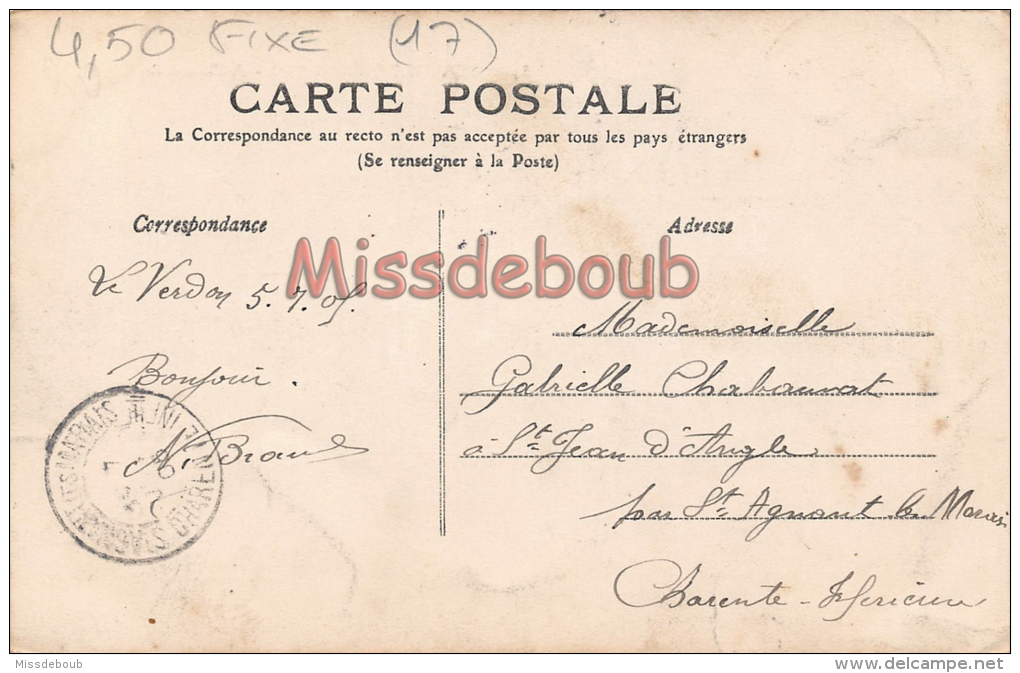 4,50 FIXE (17)
CARTE POSTALE
La Correspondance au recto n'est pas acceptée par tous les pays étrangers
(Se renseigner à la Poste)
Correspondance
Adresse
Missdeboub
Le Verdon 5.7.05.
Bonjour.
Mademoiselle
Gabrielle Chabaunat
à St Jean d'Angle
par St Agnant les Marais
Charente-Inférieure
Missdeboub
www.delcampe.net